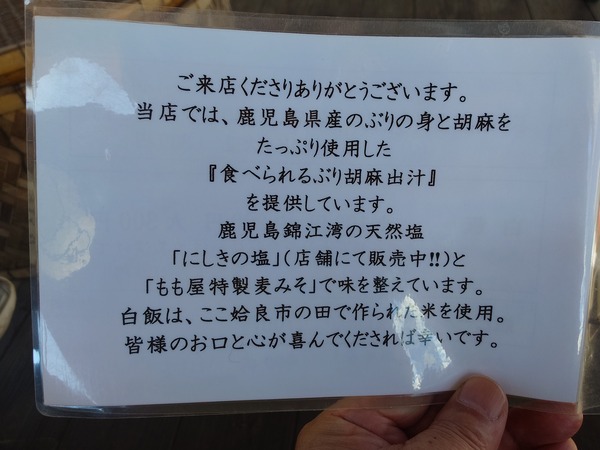 ご来店くださりありがとうございます。
当店では、鹿児島県産のぶりの身と胡麻を
たっぷり使用した
『食べられるぶり胡麻出汁』
を提供しています。
鹿児島錦江湾の天然塩
「にしきの塩」(店舗にて販売中!!)と
「もも屋特製麦みそ」で味を整えています。
白飯は、ここ姶良市の田で作られた米を使用。
皆様のお口と心が喜んでくだされば幸いです。